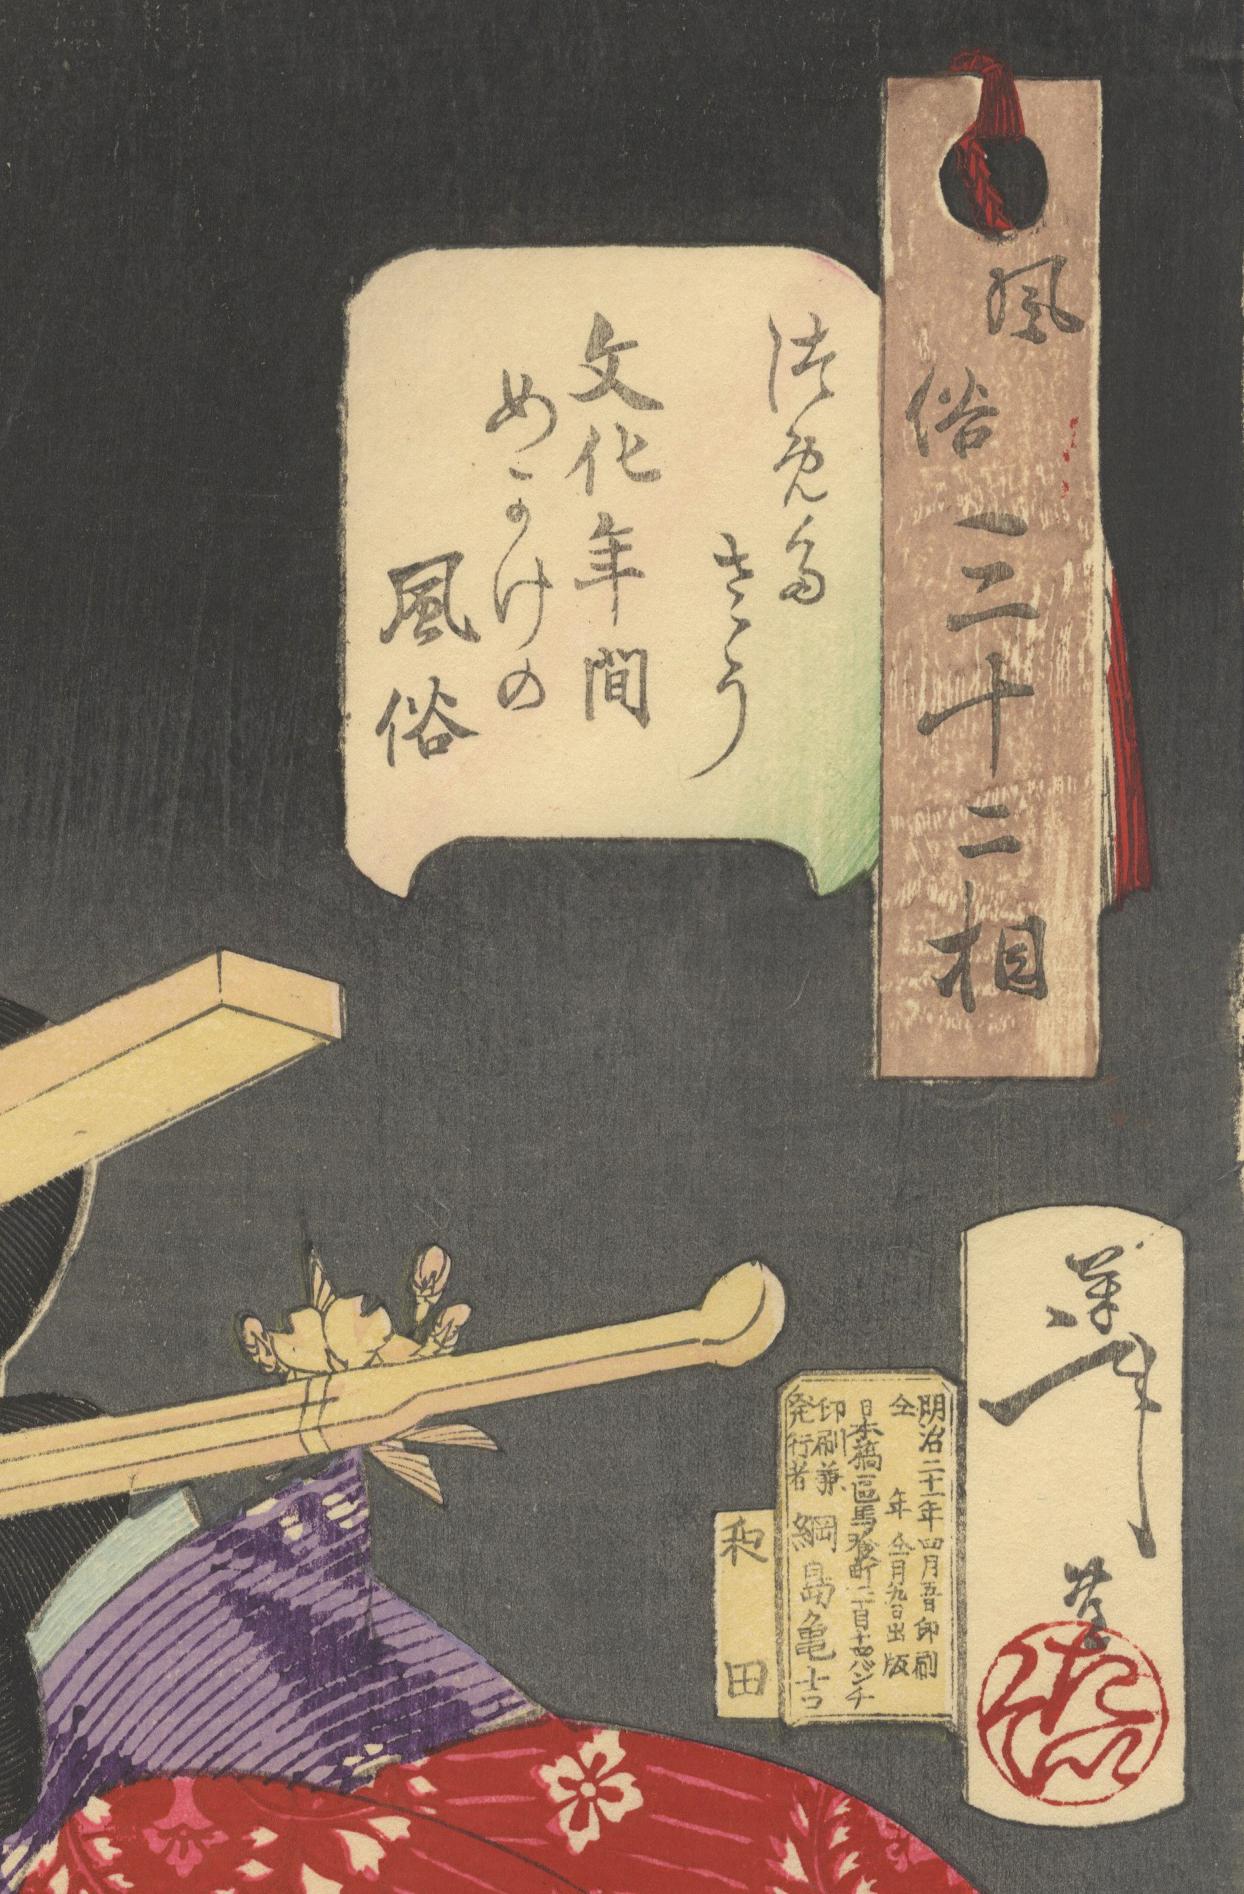 風俗三十二相
徒免多
さう
文化年間
めかけの
風俗
芳年
明治二十一年四月五日印刷
仝年仝月九日出版
日本橋區馬喰町二丁目十四バンチ
印刷兼
発行者 綱島亀吉
和田